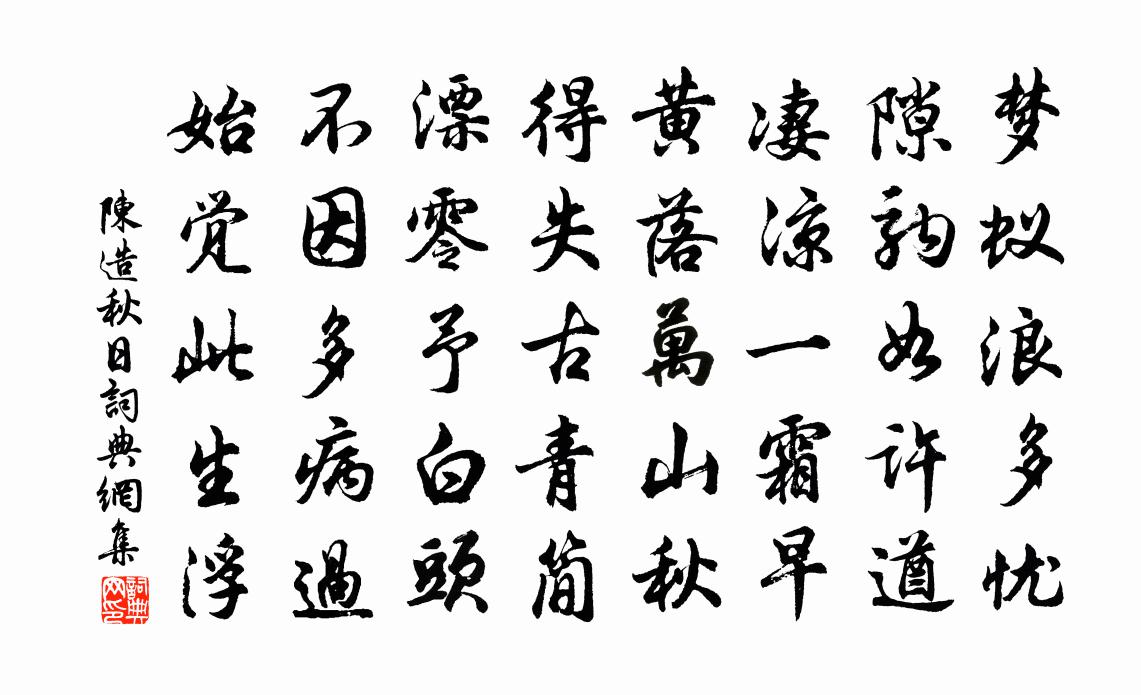 梦蚁浪多忧
隙驹如许遒
凄凉一霜早
黄落萬山秋
得失古青简
漂零予白頭
不因多病過
始觉此生浮
陳造秋日詞典網集
詞典网印